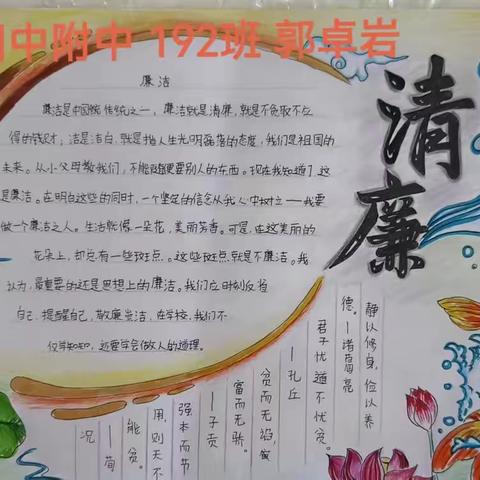 中附中 192班 郭卓岩
清廉
廉洁
廉洁是中国的传统之一，廉洁就是清廉，就是不贪取不应
得的钱财；洁是洁白，就是指人生光明磊落的态度，我们是祖国的
未来。从小父母教我们，不能随便要别人的东西。现在我知道了这
是廉洁。在明白这些的同时，一个坚定的信念从我心中树立—我要
做一个廉洁之人。生活就像一朵花，美丽芳香。可是，在这美丽的
花朵上，却总有一些斑点。这些斑点就是不廉洁。我
认为，最重要的还是思想上的廉洁。我们应时刻反省
自己，提醒自己，敬廉崇洁，在学校，我们不
仅学知识，还要学会做人的道理。
静以修身，俭以养
德。—诸葛亮
君子忧道不忧贫。
—孔丘
贫而无谄，
富而无骄。
—子贡
强本而节
用，则天不
能贫。
—荀
况